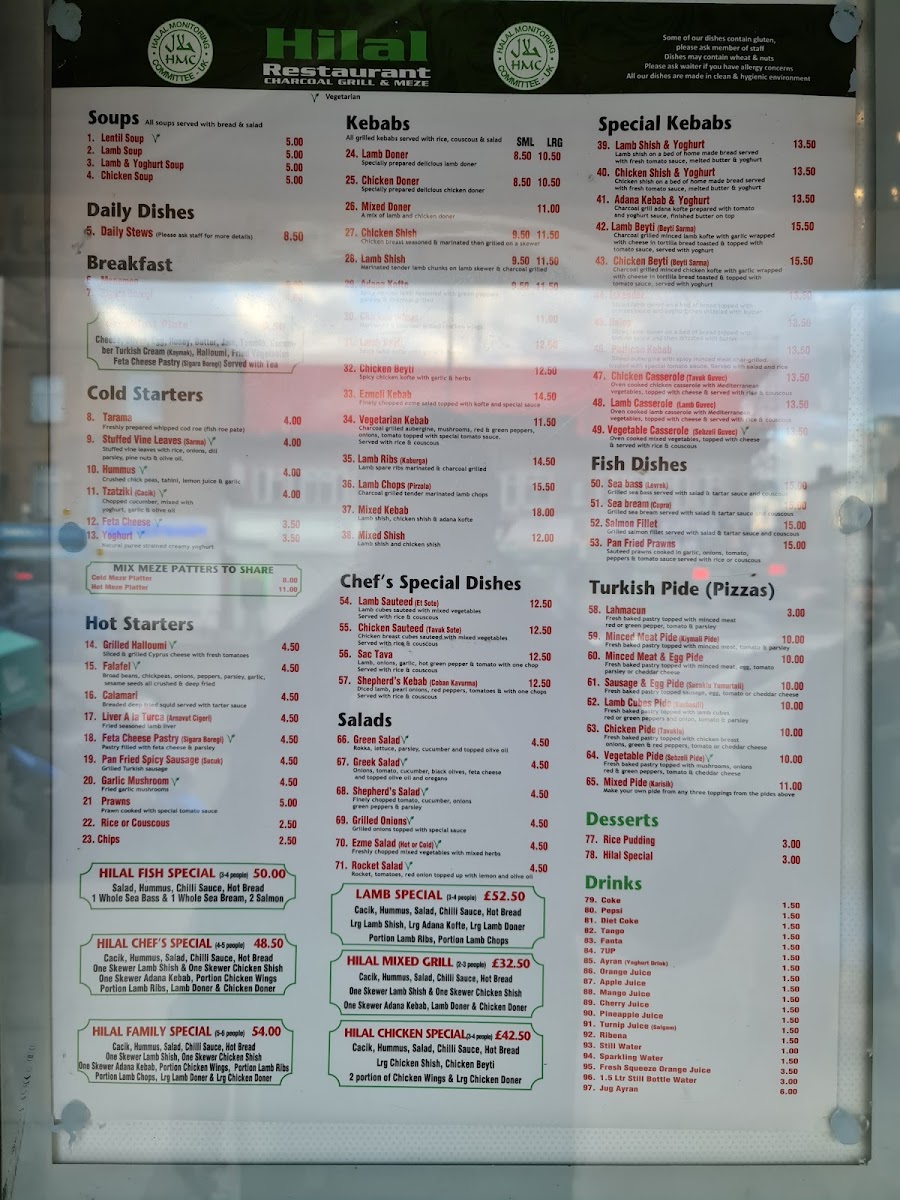 HALAL MONITORING COMMITTEE - UK
HMC
Hilal
Restaurant
CHARCOAL GRILL & MEZE
HALAL MONITORING COMMITTEE - UK
HMC
Some of our dishes contain gluten,
please ask member of staff
Dishes may contain wheat & nuts
Please ask waiter if you have allergy concerns
All our dishes are made in clean & hygienic environment
Vegetarian
Soups All soups served with bread & salad
1. Lentil Soup 5.00
2. Lamb Soup 5.00
3. Lamb & Yoghurt Soup 5.00
4. Chicken Soup 5.00
Daily Dishes
5. Daily Stews (Please ask staff for more details) 8.50
Breakfast
ber Turkish Cream (Kaymak), Halloumi, Fried
Feta Cheese Pastry (Sigara Boregi) Served with Tea
Cold Starters
8. Tarama 4.00
Freshly prepared whipped cod roe (fish roe pate)
9. Stuffed Vine Leaves (Sarma) 4.00
Stuffed vine leaves with rice, onions, dill
parsley, pine nuts & olive oil.
10. Hummus 4.00
Crushed chick peas, tahini, lemon juice & garlic
11. Tzatziki (Cacik) 4.00
Chopped cucumber, mixed with
yoghurt, garlic & olive oil
12. Feta Cheese 3.50
13. Yoghurt 3.50
Natural puree strained creamy yoghurt
MIX MEZE PATTERS TO SHARE
Cold Meze Platter 8.00
Hot Meze Platter 11.00
Hot Starters
14. Grilled Halloumi 4.50
Sliced & grilled Cyprus cheese with fresh tomatoes
15. Falafel 4.50
Broad beans, chickpeas, onions, peppers, parsley, garlic,
sesame seeds all crushed & deep fried
16. Calamari 4.50
Breaded deep fried squid served with tartar sauce
17. Liver A la Turca (Arnavut Cigeri) 4.50
Fried seasoned lamb liver
18. Feta Cheese Pastry (Sigara Boregi) 4.50
Pastry filled with feta cheese & parsley
19. Pan Fried Spicy Sausage (Sucuk) 4.50
Grilled Turkish sausage
20. Garlic Mushroom 4.50
Fried garlic mushrooms
21 Prawns 5.00
Prawn cooked with special tomato sauce
22. Rice or Couscous 2.50
23. Chips 2.50
HILAL FISH SPECIAL (3-4 people) 50.00
Salad, Hummus, Chilli Sauce, Hot Bread
1 Whole Sea Bass & 1 Whole Sea Bream, 2 Salmon
HILAL CHEF'S SPECIAL (4-5 people) 48.50
Cacik, Hummus, Salad, Chilli Sauce, Hot Bread
One Skewer Lamb Shish & One Skewer Chicken Shish
One Skewer Adana Kebab, Portion Chicken Wings
Portion Lamb Ribs, Lamb Doner & Chicken Doner
HILAL FAMILY SPECIAL (5-6 people) 54.00
Cacik, Hummus, Salad, Chilli Sauce, Hot Bread
One Skewer Lamb Shish, One Skewer Chicken Shish
One Skewer Adana Kebab, Portion Chicken Wings, Portion Lamb Ribs
Portion Lamb Chops, Lrg Lamb Doner & Lrg Chicken Doner
Kebabs
All grilled kebabs served with rice, couscous & salad SML LRG
24. Lamb Doner 8.50 10.50
Specially prepared delicious lamb doner
25. Chicken Doner 8.50 10.50
Specially prepared delicious chicken doner
26. Mixed Doner 11.00
A mix of lamb and chicken doner
27. Chicken Shish 9.50 11.50
Chicken breast seasoned & marinated then grilled on a skewer
28. Lamb Shish 9.50 11.50
Marinated tender lamb chunks on lamb skewer & charcoal grilled
29. Adana Kofte 9.50 11.50
30. Chicken Wings 11.00
12.50
32. Chicken Beyti 12.50
Spicy chicken kofte with garlic & herbs
33. Ezmeli Kebab 14.50
Finely chopped ezme salad topped with kofte and special sauce
34. Vegetarian Kebab 11.50
Charcoal grilled aubergine, mushrooms, red & green peppers,
onions, tomato topped with special tomato sauce.
Served with rice & couscous
35. Lamb Ribs (Kaburga) 14.50
Lamb spare ribs marinated & charcoal grilled
36. Lamb Chops (Pirzola) 15.50
Charcoal grilled tender marinated lamb chops
37. Mixed Kebab 18.00
Lamb shish, chicken shish & adana kofte
38. Mixed Shish 12.00
Lamb shish and chicken shish
Chef's Special Dishes
54. Lamb Sauteed (Et Sote) 12.50
Lamb cubes sauteed with mixed vegetables
Served with rice & couscous
55. Chicken Sauteed (Tavuk Sote) 12.50
Chicken breast cubes sauteed with mixed vegetables
Served with rice & couscous
56. Sac Tava 12.50
Lamb, onions, garlic, hot green pepper & tomato with one chop
Served with rice & couscous
57. Shepherd's Kebab (Coban Kavurma) 12.50
Diced lamb, pearl onions, red peppers, tomatoes & with one chops
Served with rice & couscous
Salads
66. Green Salad 4.50
Rokka, lettuce, parsley, cucumber and topped olive oil
67. Greek Salad 4.50
Onions, tomato, cucumber, black olives, feta cheese
and topped olive oil and oregano
68. Shepherd's Salad 4.50
Finely chopped tomato, cucumber, onions
green peppers & parsley
69. Grilled Onions 4.50
Grilled onions topped with special sauce
70. Ezme Salad (Hot or Cold) 4.50
Freshly chopped mixed vegetables with mixed herbs
71. Rocket Salad 4.50
Rocket, tomatoes, red onion topped up with lemon and olive oil
LAMB SPECIAL (3-4 people) £52.50
Cacik, Hummus, Salad, Chilli Sauce, Hot Bread
Lrg Lamb Shish, Lrg Adana Kofte, Lrg Lamb Doner
Portion Lamb Ribs, Portion Lamb Chops
HILAL MIXED GRILL (2-3 people) £32.50
Cacik, Hummus, Salad, Chilli Sauce, Hot Bread
One Skewer Lamb Shish & One Skewer Chicken Shish
One Skewer Adana Kebab, Lamb Doner & Chicken Doner
HILAL CHICKEN SPECIAL (3-4 people) £42.50
Cacik, Hummus, Salad, Chilli Sauce, Hot Bread
Lrg Chicken Shish, Chicken Beyti
2 portion of Chicken Wings & Lrg Chicken Doner
Special Kebabs
39. Lamb Shish & Yoghurt 13.50
Lamb shish on a bed of home made bread served
with fresh tomato sauce, melted butter & yoghurt
40. Chicken Shish & Yoghurt 13.50
Chicken shish on a bed of home made bread served
with fresh tomato sauce, melted butter & yoghurt
41. Adana Kebab & Yoghurt 13.50
Charcoal grill adana kofte prepared with tomato
and yoghurt sauce, finished butter on top
42. Lamb Beyti (Beyti Sarma) 15.50
Charcoal grilled minced lamb kofte with garlic wrapped
with cheese in tortilla bread toasted & topped with
tomato sauce, served with yoghurt
43. Chicken Beyti (Beyti Sarma) 15.50
Charcoal grilled minced chicken kofte with garlic wrapped
with cheese in tortilla bread toasted & topped with
tomato sauce, served with yoghurt
44. Iskender 13.50
13.50
Kebab 13.50
47. Chicken Casserole (Tavuk Guvec) 13.50
Oven cooked chicken casserole with Mediterranean
vegetables, topped with cheese & served with rice & couscous
48. Lamb Casserole (Lamb Guvec) 13.50
Oven cooked lamb casserole with Mediterranean
vegetables, topped with cheese & served with rice & couscous
49. Vegetable Casserole (Sebzeli Guvec) 13.50
Oven cooked mixed vegetables, topped with cheese
& served with rice & couscous
Fish Dishes
50. Sea bass (Levrek) 15.00
Grilled sea bass served with salad & tartar sauce and couscous
51. Sea bream (Cupra)
Grilled sea bream served with salad & tartar sauce and couscous
52. Salmon Fillet 15.00
Grilled salmon fillet served with salad & tartar sauce and couscous
53. Pan Fried Prawns 15.00
Sauteed prawns cooked in garlic, onions, tomato,
peppers & tomato sauce served with rice or couscous
Turkish Pide (Pizzas)
58. Lahmacun 3.00
Fresh baked pastry topped with minced meat
red or green pepper, tomato & parsley
59. Minced Meat Pide (Kiymali Pide) 10.00
Fresh baked pastry topped with minced meat, tomato & parsley
60. Minced Meat & Egg Pide 10.00
Fresh baked pastry topped with minced meat, egg, tomato
parsley or cheddar cheese
61. Sausage & Egg Pide (Sucuklu Yumurtali) 10.00
Fresh baked pastry topped sausage, egg, tomato or cheddar cheese
62. Lamb Cubes Pide (Kusbasili) 10.00
Fresh baked pastry topped with lamb cubes
red or green peppers and onion, tomato & parsley
63. Chicken Pide (Tavuklu) 10.00
Fresh baked pastry topped with chicken breast
onions, green & red peppers, tomato or cheddar cheese
64. Vegetable Pide (Sebzeli Pide) 10.00
Fresh baked pastry topped with mushrooms, onions
red & green peppers, tomato & cheddar cheese
65. Mixed Pide (Karisik) 11.00
Make your own pide from any three toppings from the pides above
Desserts
77. Rice Pudding 3.00
78. Hilal Special 3.00
Drinks
79. Coke 1.50
80. Pepsi 1.50
81. Diet Coke 1.50
82. Tango 1.50
83. Fanta 1.50
84. 7UP 1.50
85. Ayran (Yoghurt Drink) 1.50
86. Orange Juice 1.50
87. Apple Juice 1.50
88. Mango Juice 1.50
89. Cherry Juice 1.50
90. Pineapple Juice 1.50
91. Turnip Juice (Salgam) 1.50
92. Ribena 1.50
93. Still Water 1.00
94. Sparkling Water 1.50
95. Fresh Squeeze Orange Juice 3.50
96. 1.5 Ltr Still Bottle Water 3.00
97. Jug Ayran 6.00